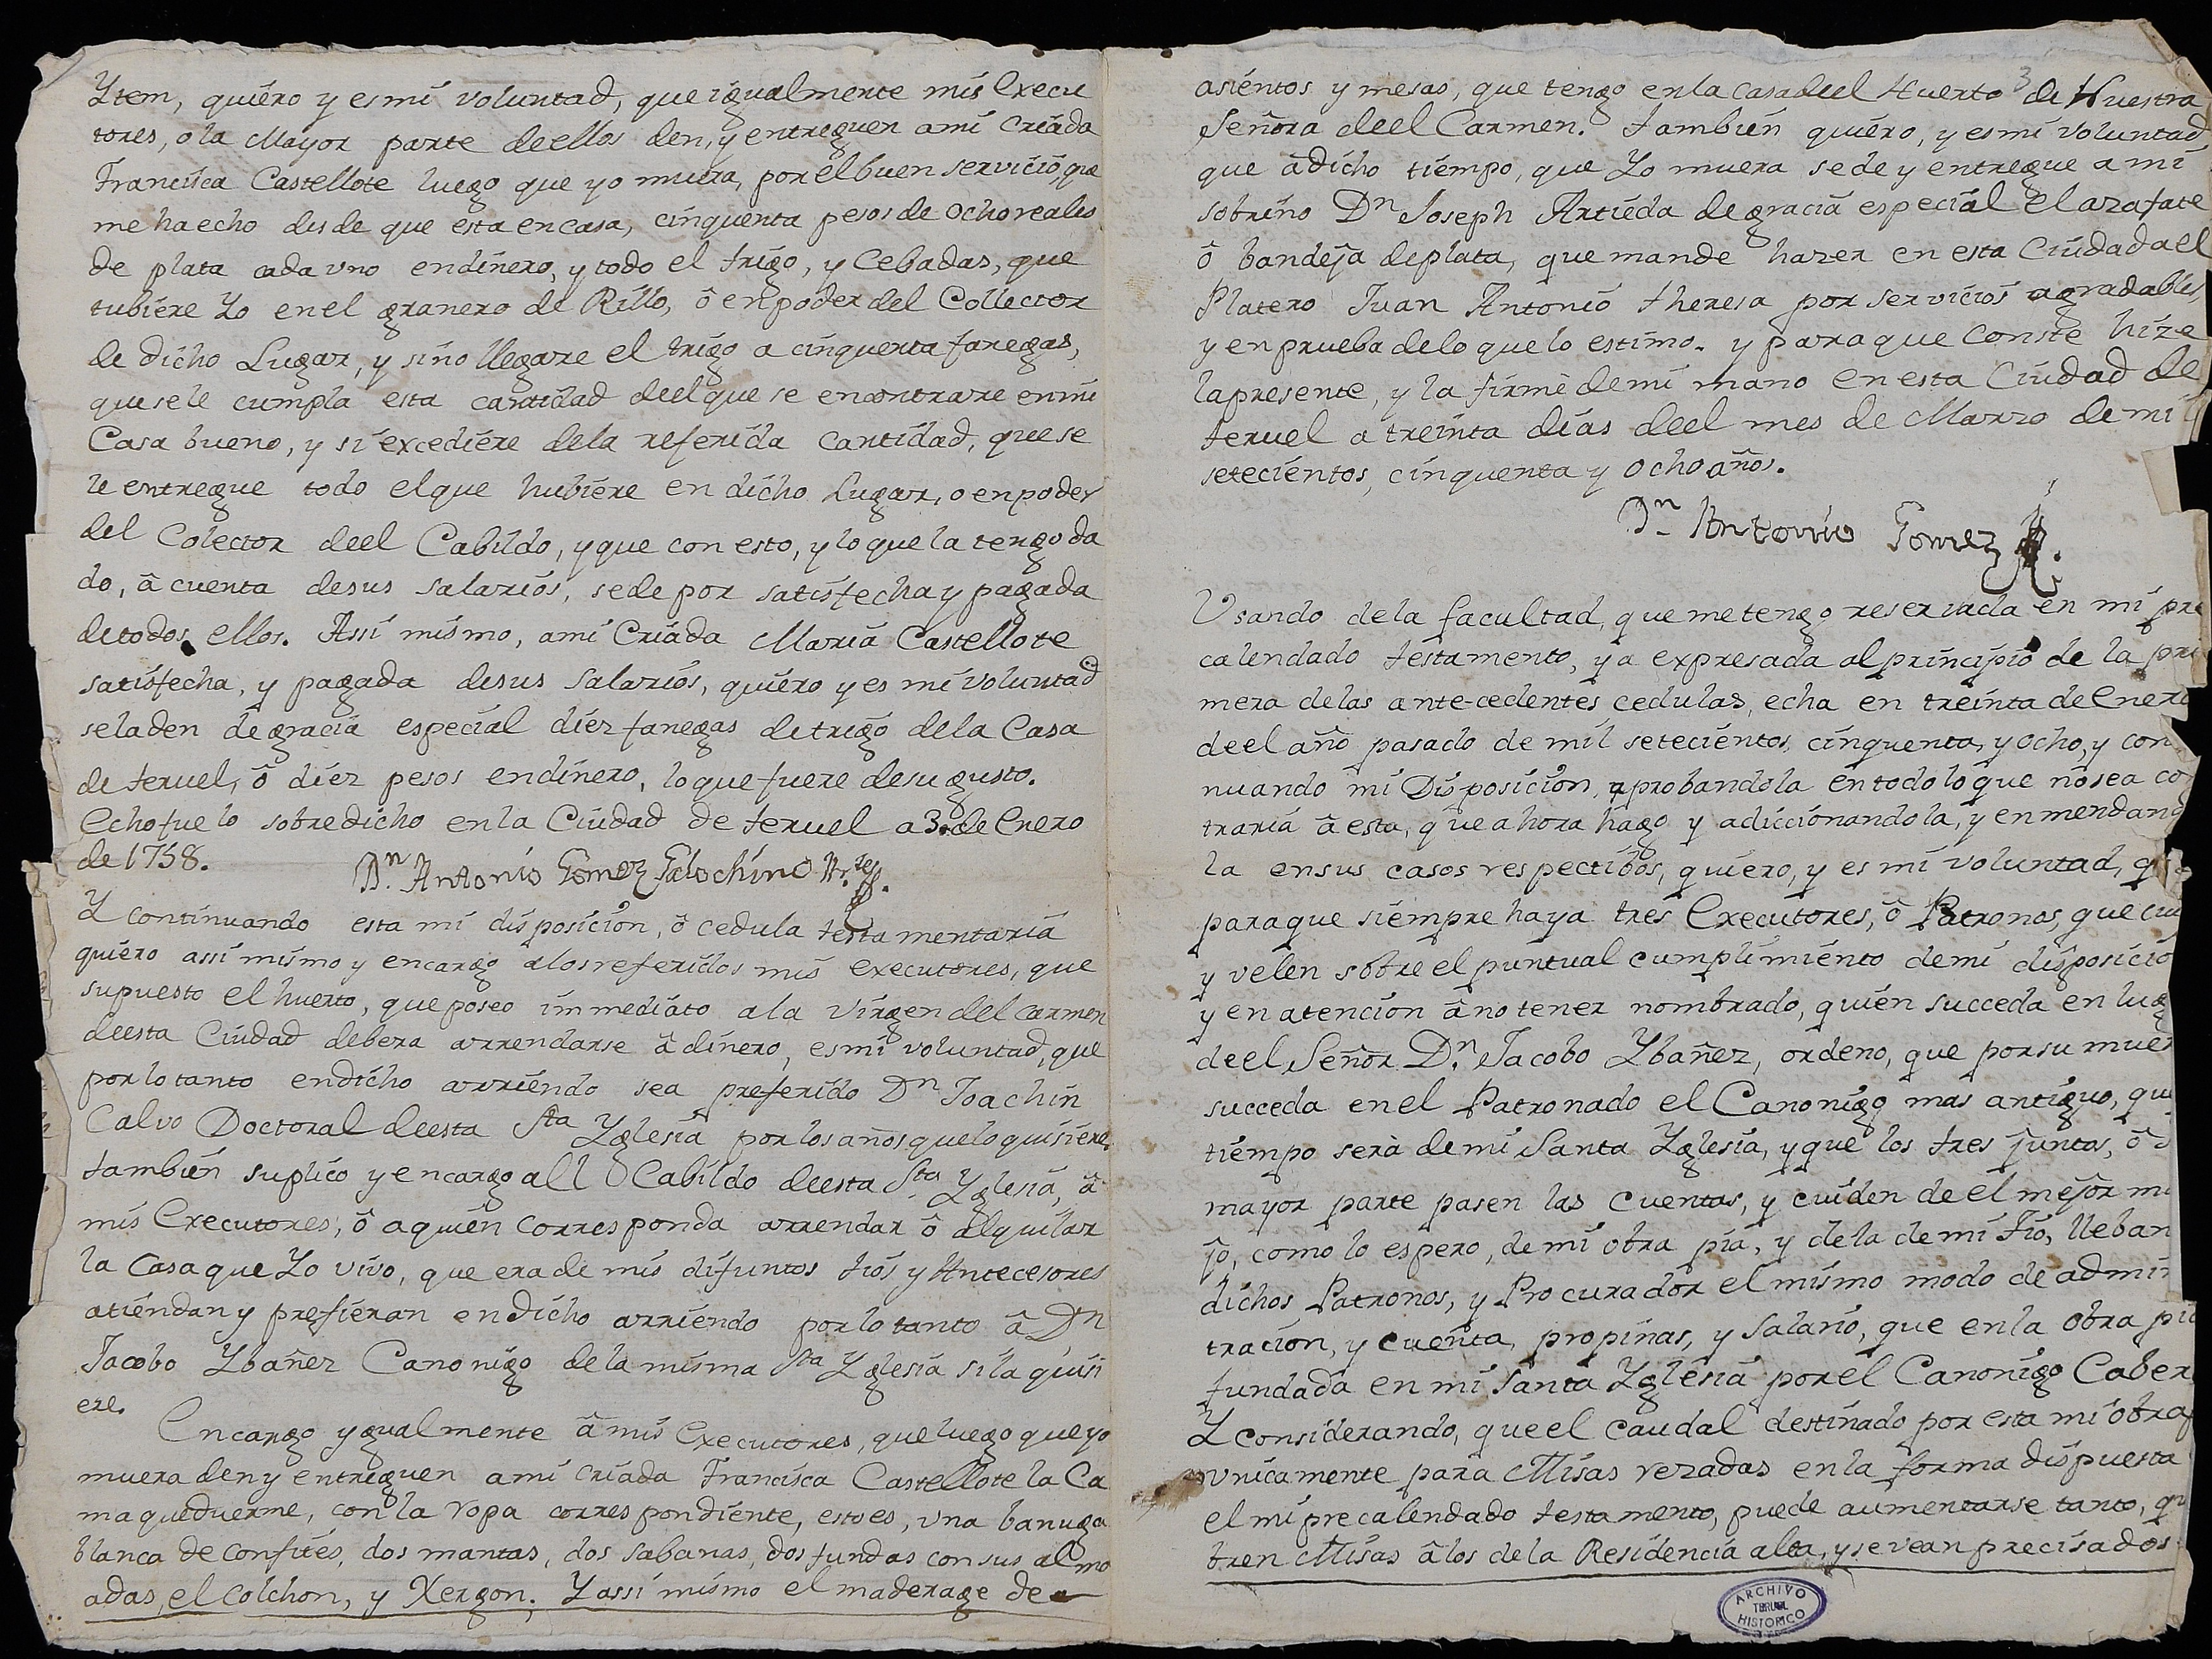 Ytem, quiero y es mi voluntad, que igualmente mis Execu
tores, o la Mayor parte deellos den, y entreguen ami Criada
Francisca Castellote luego que yo muera, por el buen servicio, que
me ha echo desde que esta en casa, cinquenta pesos de ocho reales
de plata cada uno en dinero, y todo el trigo, y Cebadas, que
tubiere Yo en el granero de Rillo, ô en poder del Collector
de dicho Lugar, y sino llegare el trigo a cinquenta fanegas,
que se le cumpla esta cantidad deel que se encontrare en mi
Casa bueno, y si excediere de la referida cantidad, que se
le entregue todo el que hubiere en dicho Lugar, o en poder
del Colector deel Cabildo, y que con esto, y lo que la tengo da
do, â cuenta desus salarios, se de por satisfecha y pagada
detodos ellos. Assi mismo, ami Criada Maria Castellote
satisfecha, y pagada desus Salarios, quiero y es mi voluntad
se la den de gracia especial diez fanegas de trigo de la Casa
de teruel, ô diez pesos en dinero, lo que fuere desu gusto.
Echo fue lo sobredicho en la Ciudad de teruel a 30 de Enero
de 1758. Dn. Antonio Gomez Galochino
Y continuando esta mi disposicion, ô cedula testamentaria
quiero assi mismo y encargo alos referidos mis executores, que
supuesto el huerto, que poseo immediato ala virgen del Carmen
deesta Ciudad debera arrendarse â dinero, es mi voluntad, que
por lo tanto en dicho arriendo sea preferido Dn Joachin
Calvo Doctoral deesta Sta Yglesia por los años que lo quisiere.
tambien suplico y encargo al Cabildo deesta Sta Yglesia, â
mis Executores, ô aquien corresponda arrendar ô alquilar
la Casa que Yo vivo, que era de mis difuntos tios y Antecesores
atiendan y prefieran en dicho arriendo por lo tanto â Dn
Jacobo Ybañez Canonigo de la misma Sta Yglesia si la quisi
ere.
Encargo ygualmente â mis Executores, que luego que yo
muera den y entreguen ami criada Francisca Castellote la Ca
ma que duerme, con la ropa correspondiente, esto es, una banuga
blanca de confites, dos mantas, dos sabanas, dos fundas con sus almo
adas, el colchon, y Xergon. Y assi mismo el maderage de
3
asientos y mesas, que tengo en la casa deel Huerto de Nuestra
Señora deel Carmen. tambien quiero, y es mi voluntad
que âdicho tiempo, que Yo muera se de y entregue a mi
sobrino Dn Joseph Artieda de gracia especial el azafate
ô bandeja de plata, que mande hazer en esta Ciudad a el
Platero Juan Antonio theresa por servicios agradables,
y en prueba de lo que lo estimo. y para que conste hize
la presente, y la firmè de mi mano en esta Ciudad de
teruel a treinta dias deel mes de Marzo de mil
setecientos, cinquenta y ocho años.
Dn Antonio Gomez
Usando de la facultad, que me tengo reservada en mi pre
calendado testamento, y a expresada al principio de la pri
mera de las ante-cedentes cedulas, echa en treinta de Enero
deel año pasado de mil setecientos, cinquenta, y ocho, y con
nuando mi Disposicion, aprobandola en todo lo que no sea co
traria â esta, que ahora hago y adiccionandola, y enmendand
la en sus casos respectibos, quiero, y es mi voluntad, q
para que siempre haya tres Executores, ô Patronos, que cui
y velen sobre el puntual cumplimiento de mi disposicio
y en atencion âno tener nombrado, quien succeda en lug
deel Señor Dn. Jacobo Ybañez, ordeno, que por su muer
succeda en el Patronado el Canonigo mas antiguo, que
tiempo serà de mi Santa Yglesia, y que los tres juntos, ô
mayor parte pasen las cuentas, y cuiden de el mejor m
jo, como lo espero, de mi obra pia, y de la de mi Tio, lleban
dichos Patronos, y Procurador el mismo modo de admin
tracion, y cuenta, propinas, y salario, que en la obra pia
fundada en mi Santa Yglesia por el Canonigo Caber
Y considerando, que el caudal destinado por esta mi obra
unicamente para Misas rezadas en la forma dispuesta
el mi precalendado testamento, puede aumentarse tanto, qu
bren Misas â los de la Residencia alta, y se vean precisados
ARCHIVO
TERUEL
HISTORICO